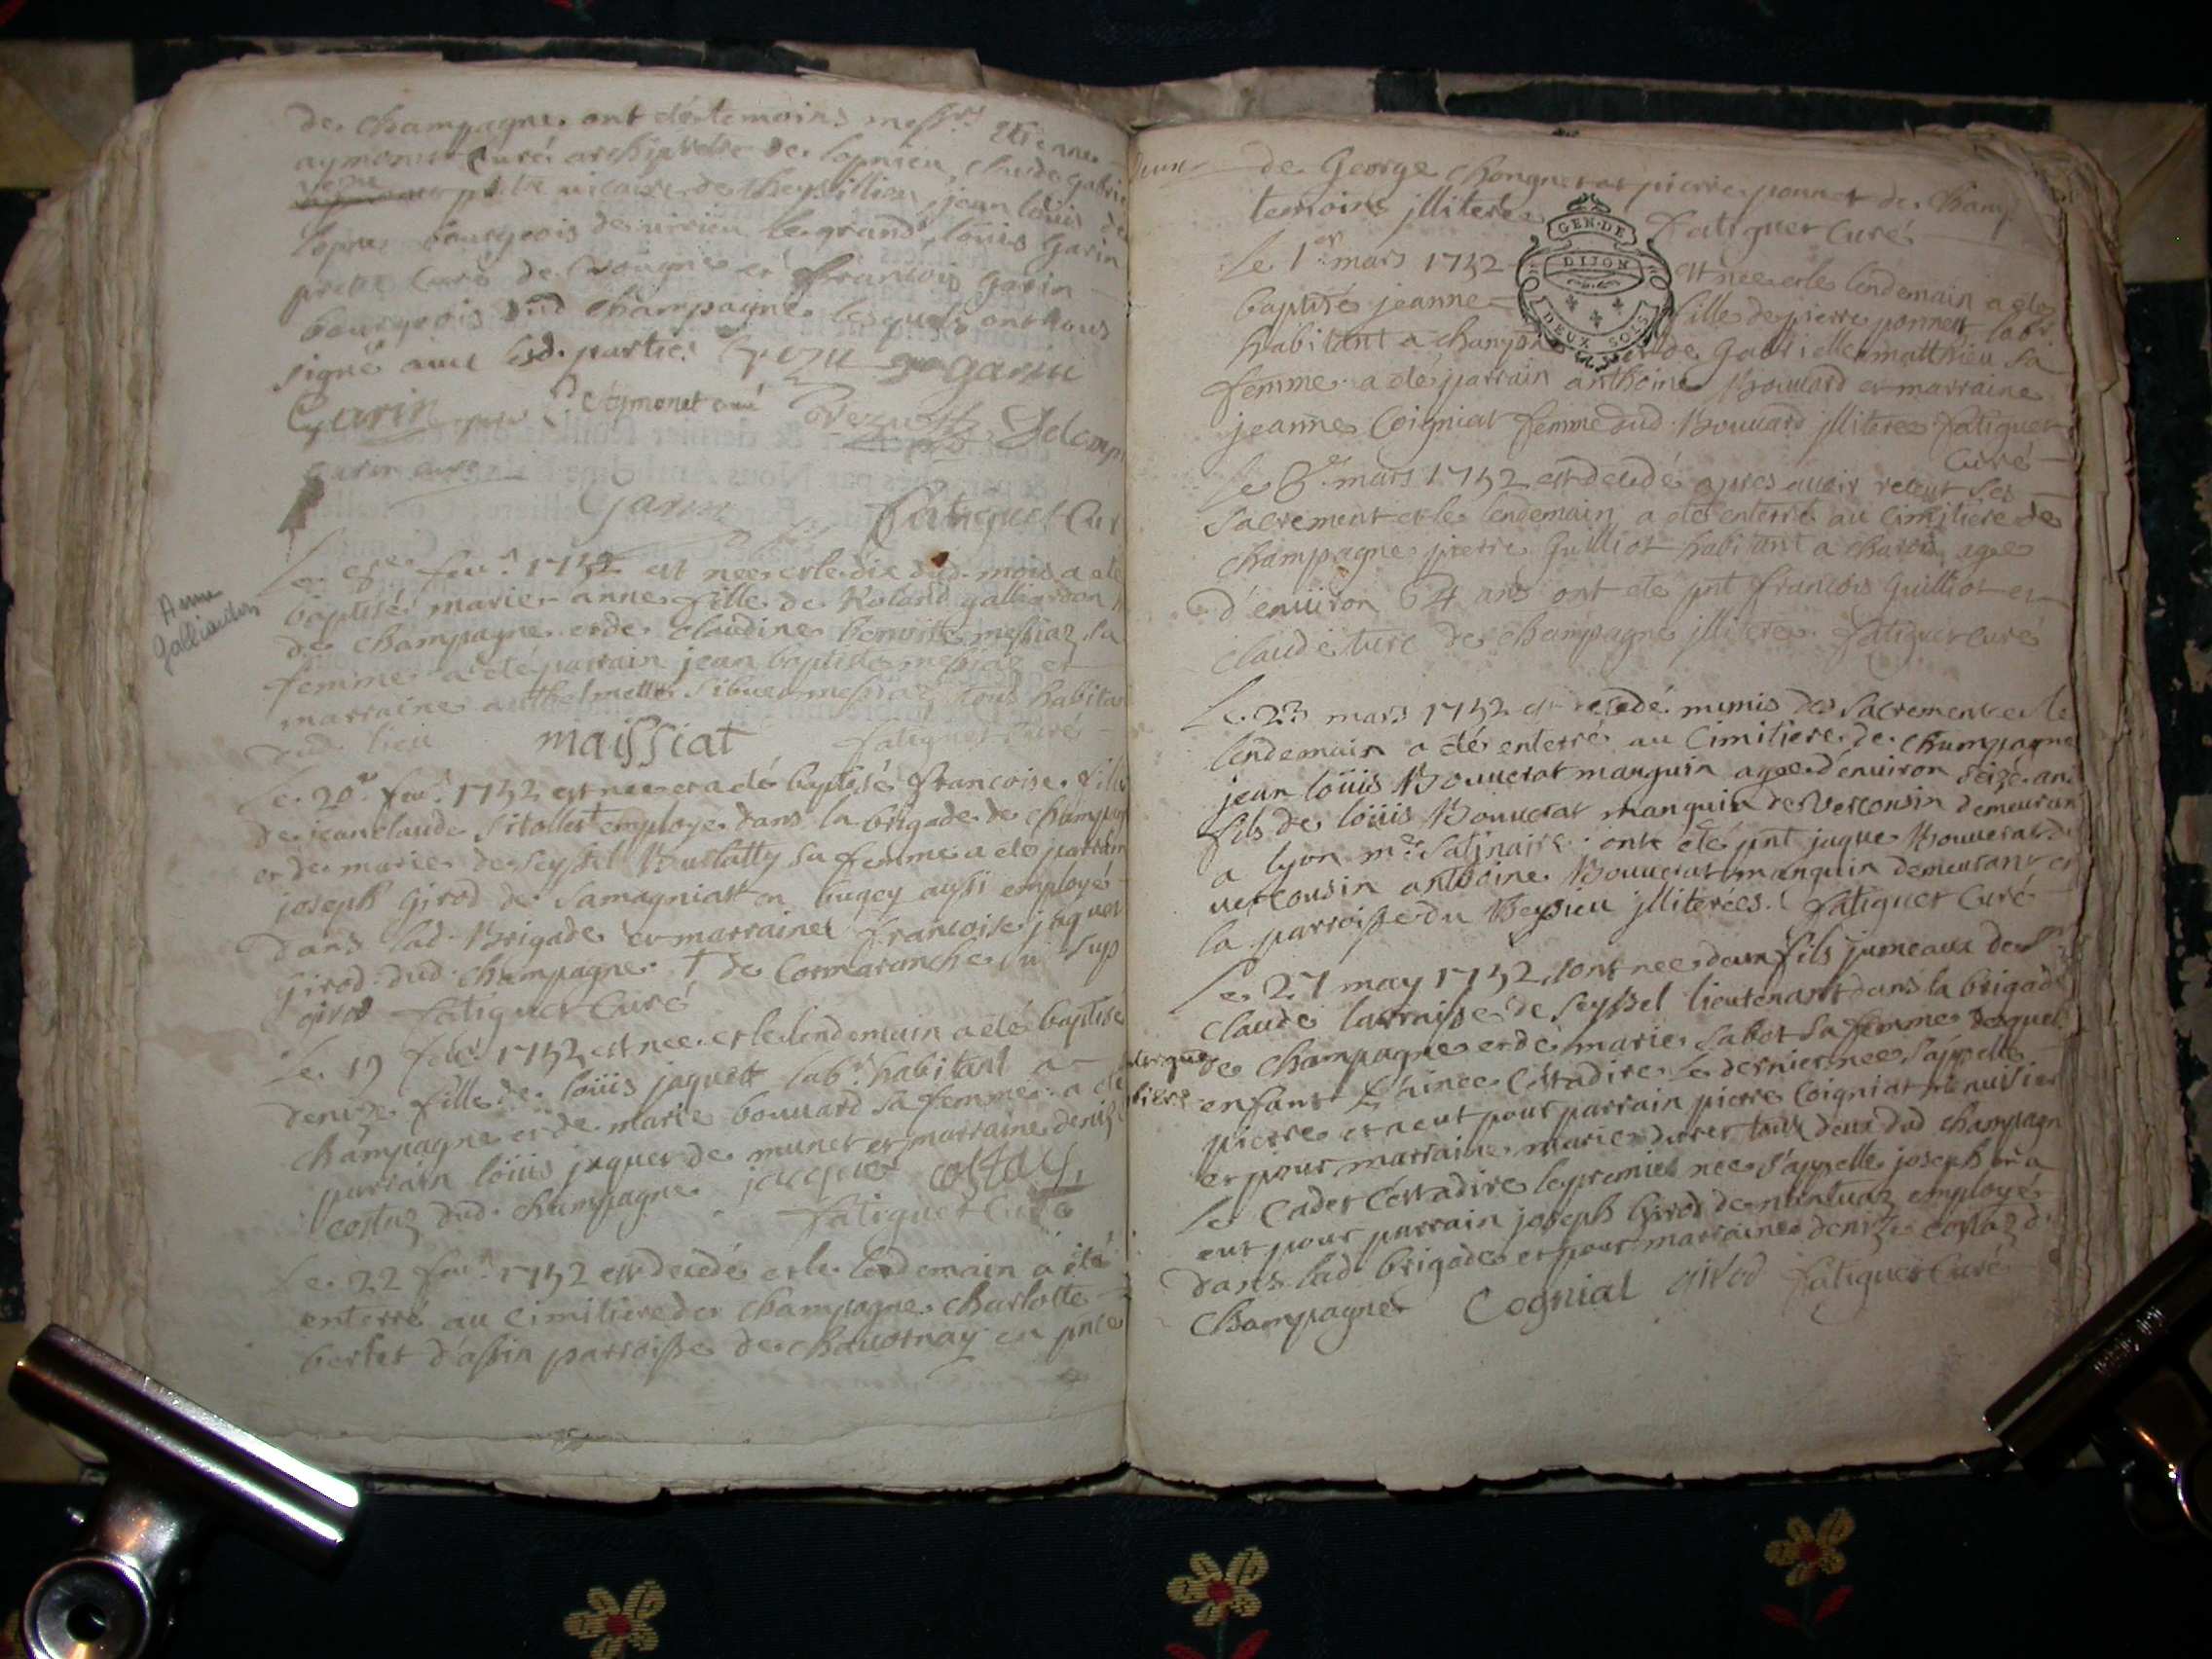 de champagne ont été temoins mess.rs Etienne
aymonet Curé archiprêtre de lopnieu, claude gabriel
pretre vicaire de Theysillieu, jean loüis de
bourgeois de virieu le grand, loüis Garin
pretre Curé de et françois Garin
bourgeois dud champagne lesquels ont tous
signé avec lesd. parties garin
Garin Aymonet curé
garin curé
Garin fatiguet Cur
Le 8.e fev.r 1752 est nee et le dix dud. mois a eté
Anne
Galliardon
baptisée marie-anne fille de Roland galliardon
de champagne et de claudine benoitte messiaz sa
femme a eté parrain jean baptiste messiaz et
marraine anthelmette Sibuet messiaz tous habitan
dud. lieu maissiat fatiguet Curé
Le 20.e fev.r 1752 est nee et a eté baptisé francoise fille
de jean claude Sitollet employé dans la brigade de champagn
et de marie de Seyssel Burlatty sa femme a eté parrain
joseph Girod de Samagniat en bugey aussi employé
dans lad. Brigade et marraine francoise jaquet
Girod dud. champagne. † de Cormaranche Su
girod fatiguet Curé
Le 19 fev.r 1752 est nee et le lendemain a eté baptisée
denize fille de loüis jaquet lab.r habitant a
champagne et de marie bouvard sa femme. a eté
parrain loüis jaquet de munet et marraine denize
costaz dud. champagne. jacque costaz
fatiguet Curé
Le 22 fev.r 1752 est decedé et le lendemain a été
enterré au Cimitiere de champagne Charlotte
bertet d'assin parroisse de chavornay en pnce
de George Chongnet et pierre ponnet de Champ
temoins jlliterés fatiguet Curé
GEN. DE
DIJON
DEUX SOLS
Le 1.er mars 1752 est nee et le lendemain a eté
baptisé jeanne fille de pierre ponnet lab.r
habitant a champagne et de Gabrielle matthieu sa
femme. a eté parrain anthoine Bouvard et marraine
jeanne Coigniat femme dud. Bouvard jlliterée fatiguet
Curé
Le 8.e mars 1752 est decedé apres avoir receut ses
sacrement et le lendemain a eté enterré au Cimitiere de
champagne pierre Guilliot habitant a agée
d'environ 64 ans ont eté pnt françois Guilliot et
claude ture de champagne jlliteré. fatiguet Curé
Le 23 mars 1752 est decedé munis des Sacrement et le
lendemain a eté enterré au Cimitiere de champagne
jean loüis Bouverat manguin agée d'environ Seize ans
fils de loüis Bouverat manguin de Vercousin demeurant
a lyon m.e Satinaire. ont eté pnt jaque Bouverat de
vercousin anthoine Bouverat manguin demeurant en
la parroisse du Beysieu jlliterées. fatiguet Curé
Le 27 may 1752 sont nee deux fils jumeaux de S.r
claude larraisse de Seyssel lieutenant dans la brigade
de champagne et de marie Sabot sa femme desquel
enfant L'ainee C'estadire le dernier nee s'appelle
pierre et a eut pour parrain pierre Coigniat menuisier
et pour marraine marie durret tous deux dud champagn
le Cadet C'estadire le premier nee s'appelle joseph et a
eut pour parrain joseph Girod de employé
dans lad. brigade et pour marraine denize costaz d
Champagne Cognial girod fatiguet Curé